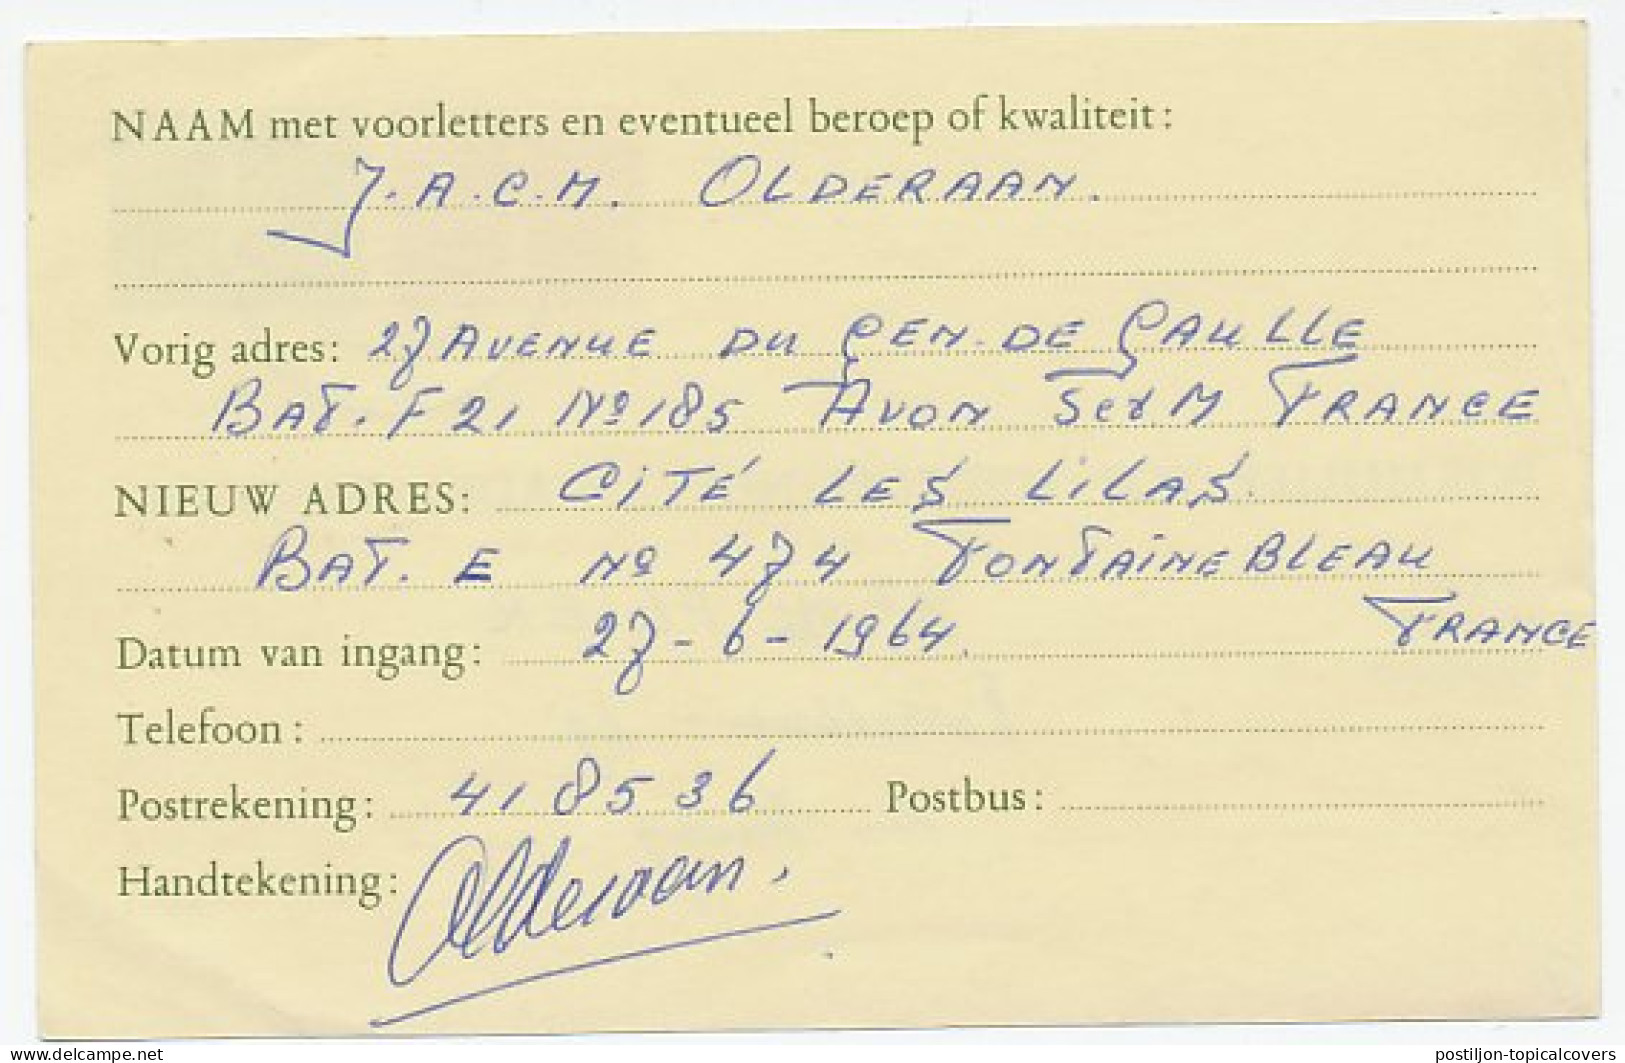 NAAM met voorletters en eventueel beroep of kwaliteit:
J.A.C.M. OLDERAAN.
Vorig adres: 27 AVENUE DU GEN. DE GAULLE
BAT. F 21 No 185 AVON SetM FRANCE
NIEUW ADRES: CITÉ LES LILAS
BAT. E No 474 FONTAINEBLEAU
FRANCE
Datum van ingang: 27-6-1964.
Telefoon:
Postrekening: 418536 Postbus:
Handtekening: Olderaan.
delcampe.net
postiljon-topicalcovers